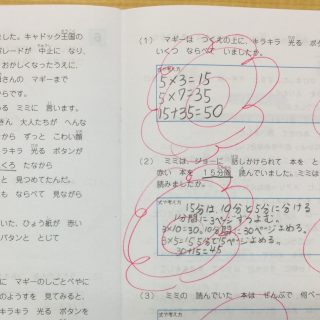 ました。キャドック王国の
パレードが 中止に なり、
おかしくなったうえに、
さんの マギーまで
からです。
る ミミに 言います。
さん 大人たちが へんな
から ずっと こわい顔
キラキラ 光る ボタンが
くろ たなから
と 見つめてたんだ。
も ならべて 見ながら
いた、ひょう紙が 赤い
バタンと とじて
に マギーのしごとべやに
のようすを 見てみると、
(1) マギーは つくえの上に、キラキラ 光る ボタン
いくつ ならべて いましたか。
式や考え方
5×3=15
5×7=35
15+35=50
(2) ミミは、ジョーに 話しかけられて 本を と
赤い 本を 15分間 読んでいました。ミミは
読みましたか。
式や考え方
15分は、10分と5分に分ける
1分間に3ページずつよむ。
3×10=30 10分間に30ページよめる。
3×5=15 5分で15ページよめる。
30+15=45
(3) ミミの 読んでいた 本は ぜんぶで 何ペー